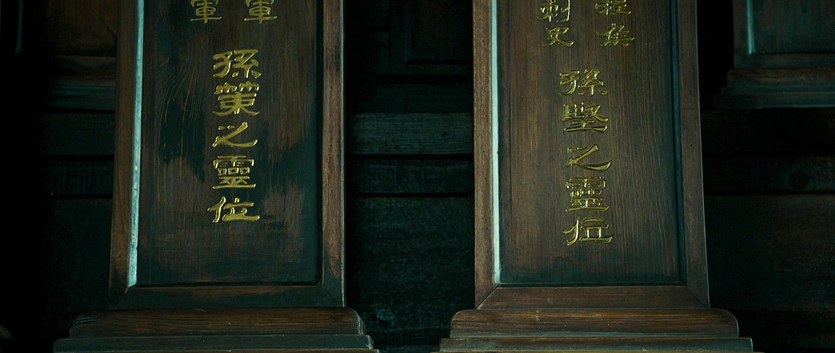 程矦
刺史
孫堅之靈位
軍
軍
孫策之靈位